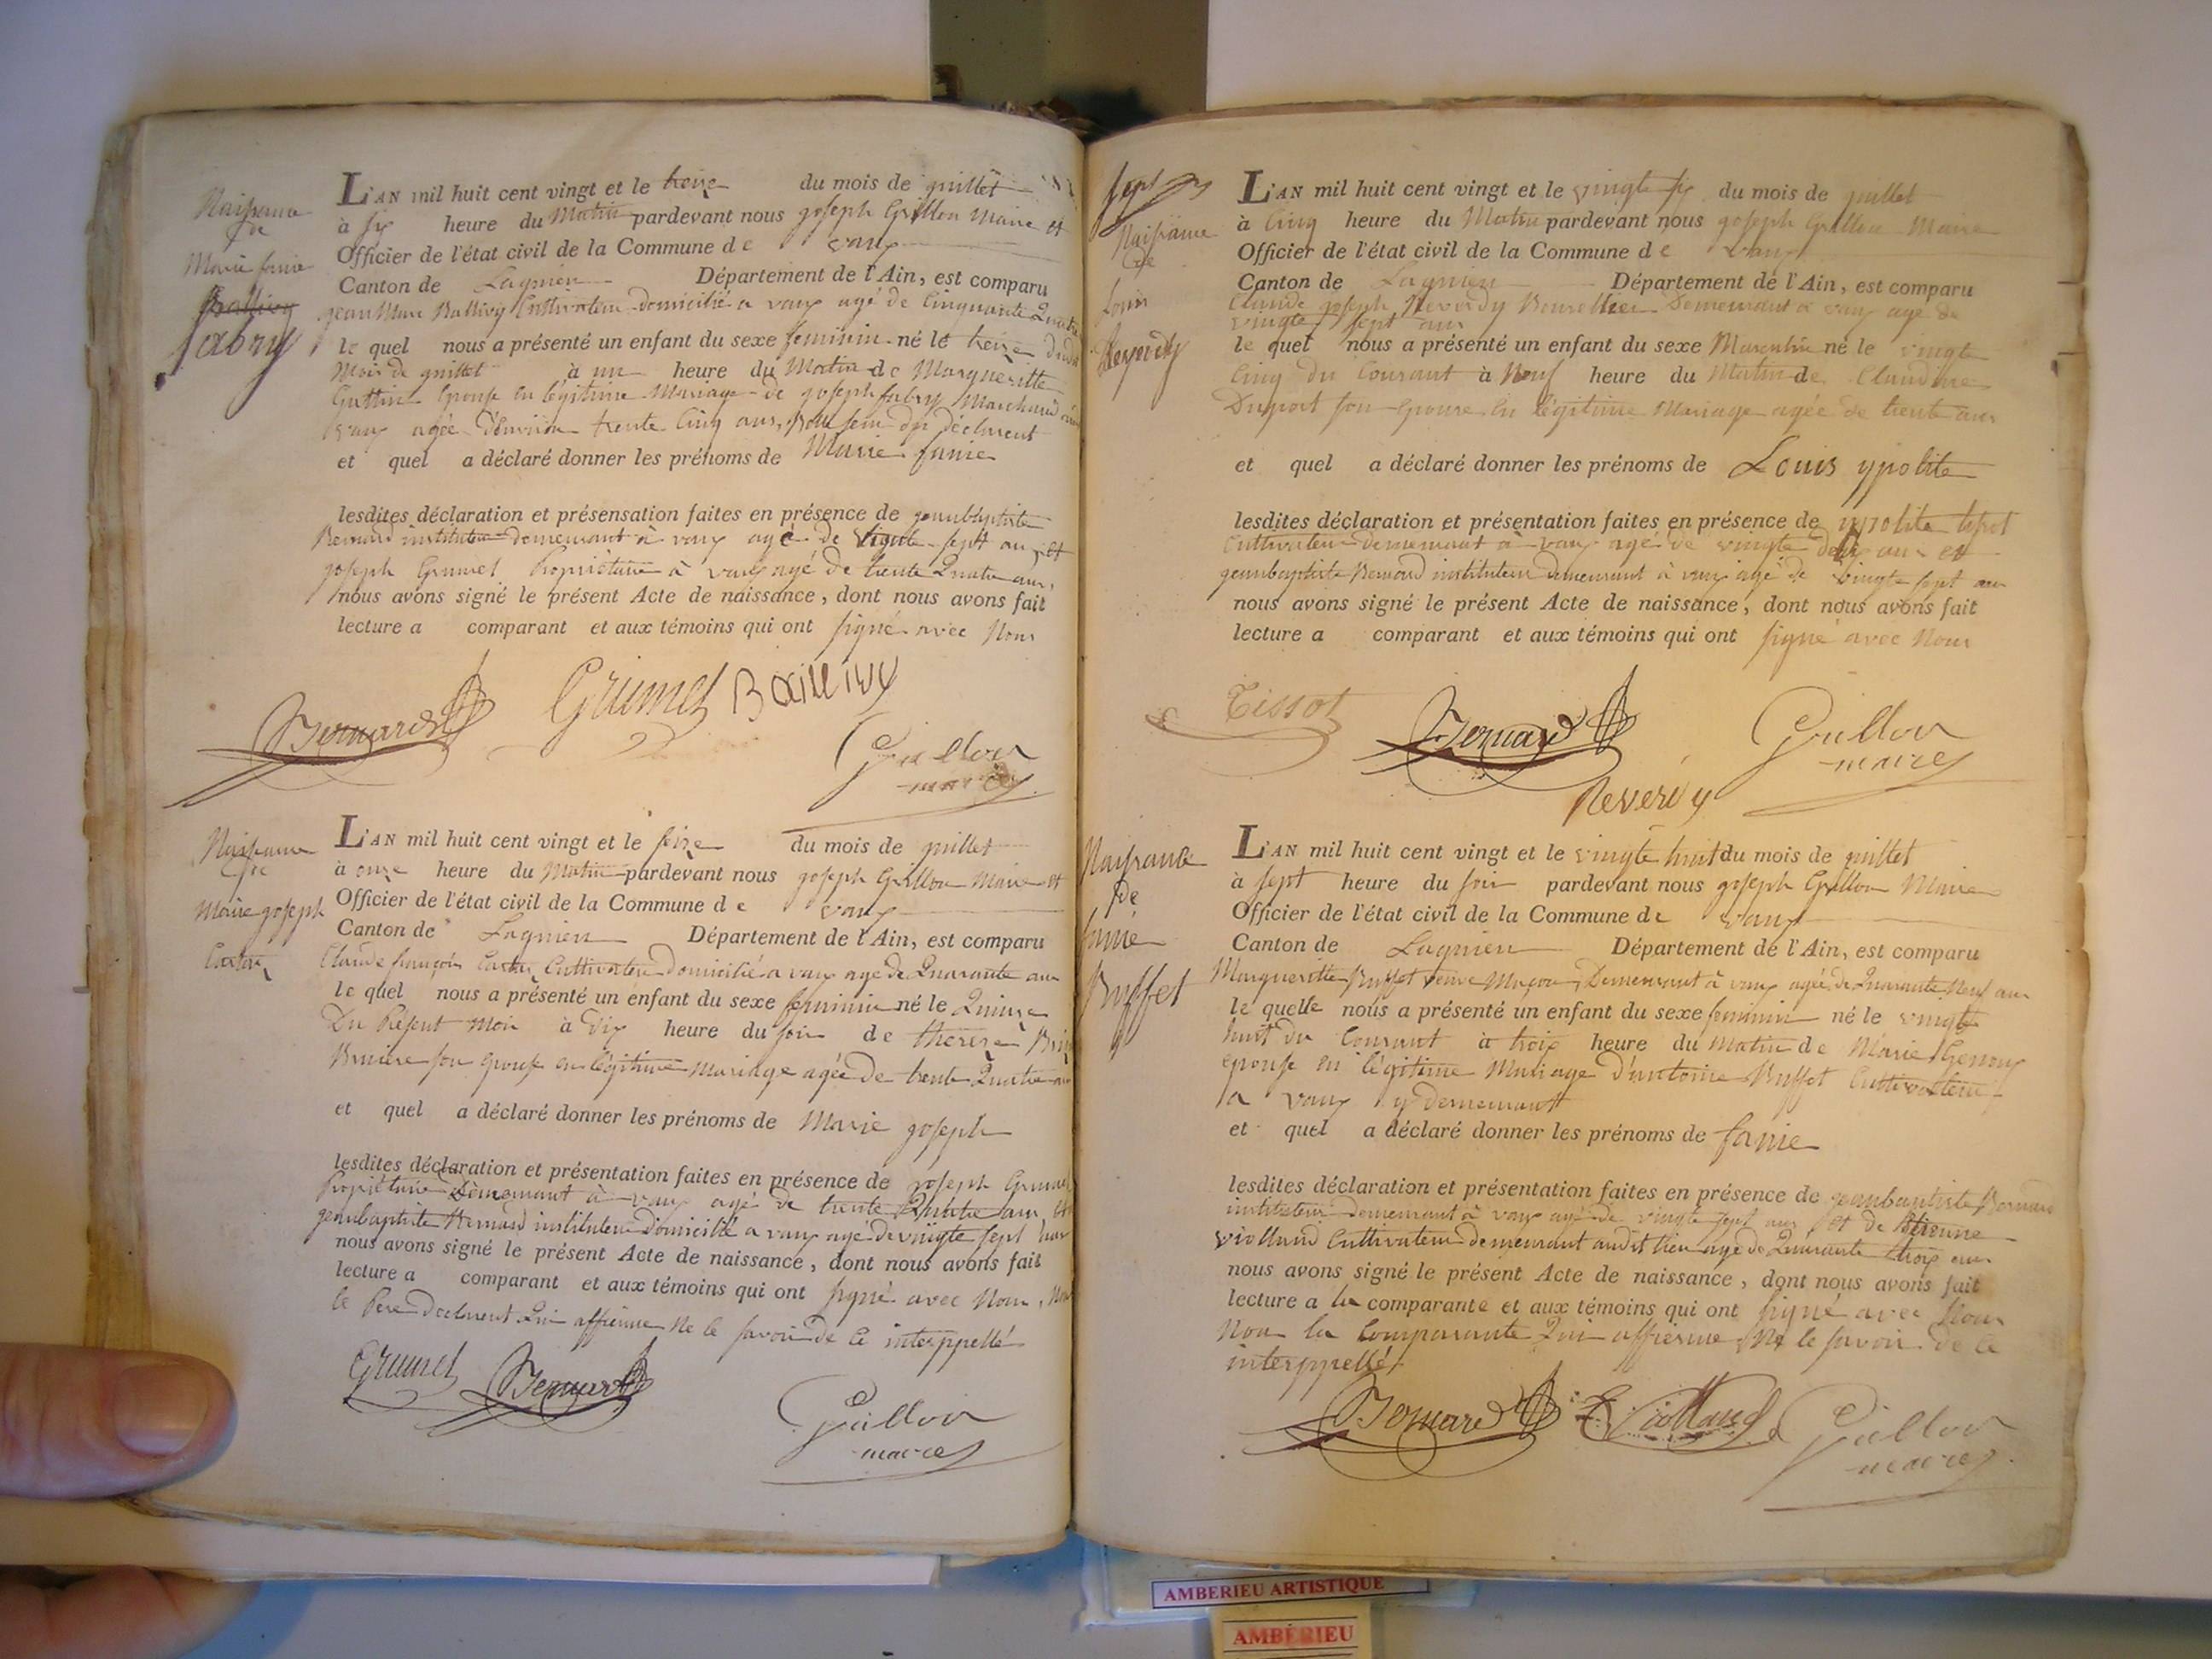 Naissance
de
Marie fanie
Ballivy
fabry
L'AN mil huit cent vingt et le treize du mois de juillet
à six heure du Matin pardevant nous joseph Grillon Maire et
Officier de l'état civil de la Commune de vaux
Canton de Lagnieu Département de l'Ain, est comparu
jean Marc Ballivy Cultivateur domicilié a vaux agé de Cinquante Quatre
le quel nous a présenté un enfant du sexe feminin né le treize dudit
Mois de juillet à un heure du Matin de Margueritte
Guttin Epouse en légitime Mariage de joseph fabry Marchand
vaux agée d'Environ trente Cinq ans,
et quel a déclaré donner les prénoms de Marie fanie
lesdites déclaration et présensation faites en présence de jeanbaptiste
Bernard instituteur demeurant à vaux agé de vingte sept ans et
joseph Grumet Propriétaire à vaux agé de trente Quatre ans,
nous avons signé le présent Acte de naissance, dont nous avons fait
lecture a comparant et aux témoins qui ont signé avec Nous
Bernard Grumet Baillivy
Grillon
maire
Naissance
de
Marie joseph
L'AN mil huit cent vingt et le seize du mois de juillet
à onze heure du Matin pardevant nous joseph Grillon Maire et
Officier de l'état civil de la Commune de vaux
Canton de Lagnieu Département de l'Ain, est comparu
Claude françois Cultivateur domicilié a vaux age de Quarante ans
le quel nous a présenté un enfant du sexe feminin né le Quinze
Du Présent Mois à Dix heure du soir de therese
Bruiere son Epouse en légitime Mariage agée de trente Quatre ans
et quel a déclaré donner les prénoms de Marie joseph
lesdites déclaration et présentation faites en présence de joseph Grumet
Propriétaire Demeurant à vaux agé de trente Quatre ans et
jeanbaptiste Bernard instituteur domicilié a vaux agé de vingte sept
nous avons signé le présent Acte de naissance, dont nous avons fait
lecture a comparant et aux témoins qui ont signé avec Nous, Non
le Pere declarent Qui affirme Ne le savoir de Ce interppellé
Grumet Bernard
Grillon
maire
sept
Naissance
de
Louis
Reverdy
L'AN mil huit cent vingt et le vingte six du mois de juillet
à Cinq heure du Matin pardevant nous joseph Grillon Maire
Officier de l'état civil de la Commune de vaux
Canton de Lagnieu Département de l'Ain, est comparu
Claude joseph Reverdy Bourellier Demeurant a vaux agé de
vingte sept ans
le quel nous a présenté un enfant du sexe Masculin né le vingte
Cinq du Courant à Neuf heure du Matin de Claudine
Duport son Epouse En légitime Mariage agée de trente ans
et quel a déclaré donner les prénoms de Louis ypolite
lesdites déclaration et présentation faites en présence de ypolite tissot
Cultivateur demeurant à vaux agé de vingte deux ans et
jeanbaptiste Bernard instituteur demeurant à vaux agé de vingte sept ans
nous avons signé le présent Acte de naissance, dont nous avons fait
lecture a comparant et aux témoins qui ont signé avec Nous
Tissot Bernard Grillon
maire
Reverdy
Naissance
de
fanie
Buffet
L'AN mil huit cent vingt et le vingte huit du mois de juillet
à sept heure du soir pardevant nous joseph Grillon Maire
Officier de l'état civil de la Commune de vaux
Canton de Lagnieu Département de l'Ain, est comparu
Margueritte Buffet veuve Maçon, Demeurant à vaux agée de Quarante Neuf ans
le quelle nous a présenté un enfant du sexe feminin né le vingte
huit du Courant à trois heure du Matin de Marie Genoux
epouse en légitime Mariage d'antoine Buffet Cultivateur
a vaux y demeurant
et quel a déclaré donner les prénoms de fanie
lesdites déclaration et présentation faites en présence de jeanbaptiste Bernard
instituteur demeurant à vaux agé de vingte sept ans et de Etienne
viollaud Cultivateur demeurant audit lieu agé de Quarante trois ans
nous avons signé le présent Acte de naissance, dont nous avons fait
lecture a la comparante et aux témoins qui ont signé avec Nous
Non la Comparante Qui affirme Ne le savoir de Ce
interppellé
Bernard E Viollaud Grillon
maire
AMBERIEU ARTISTIQUE
AMBÉRIEU